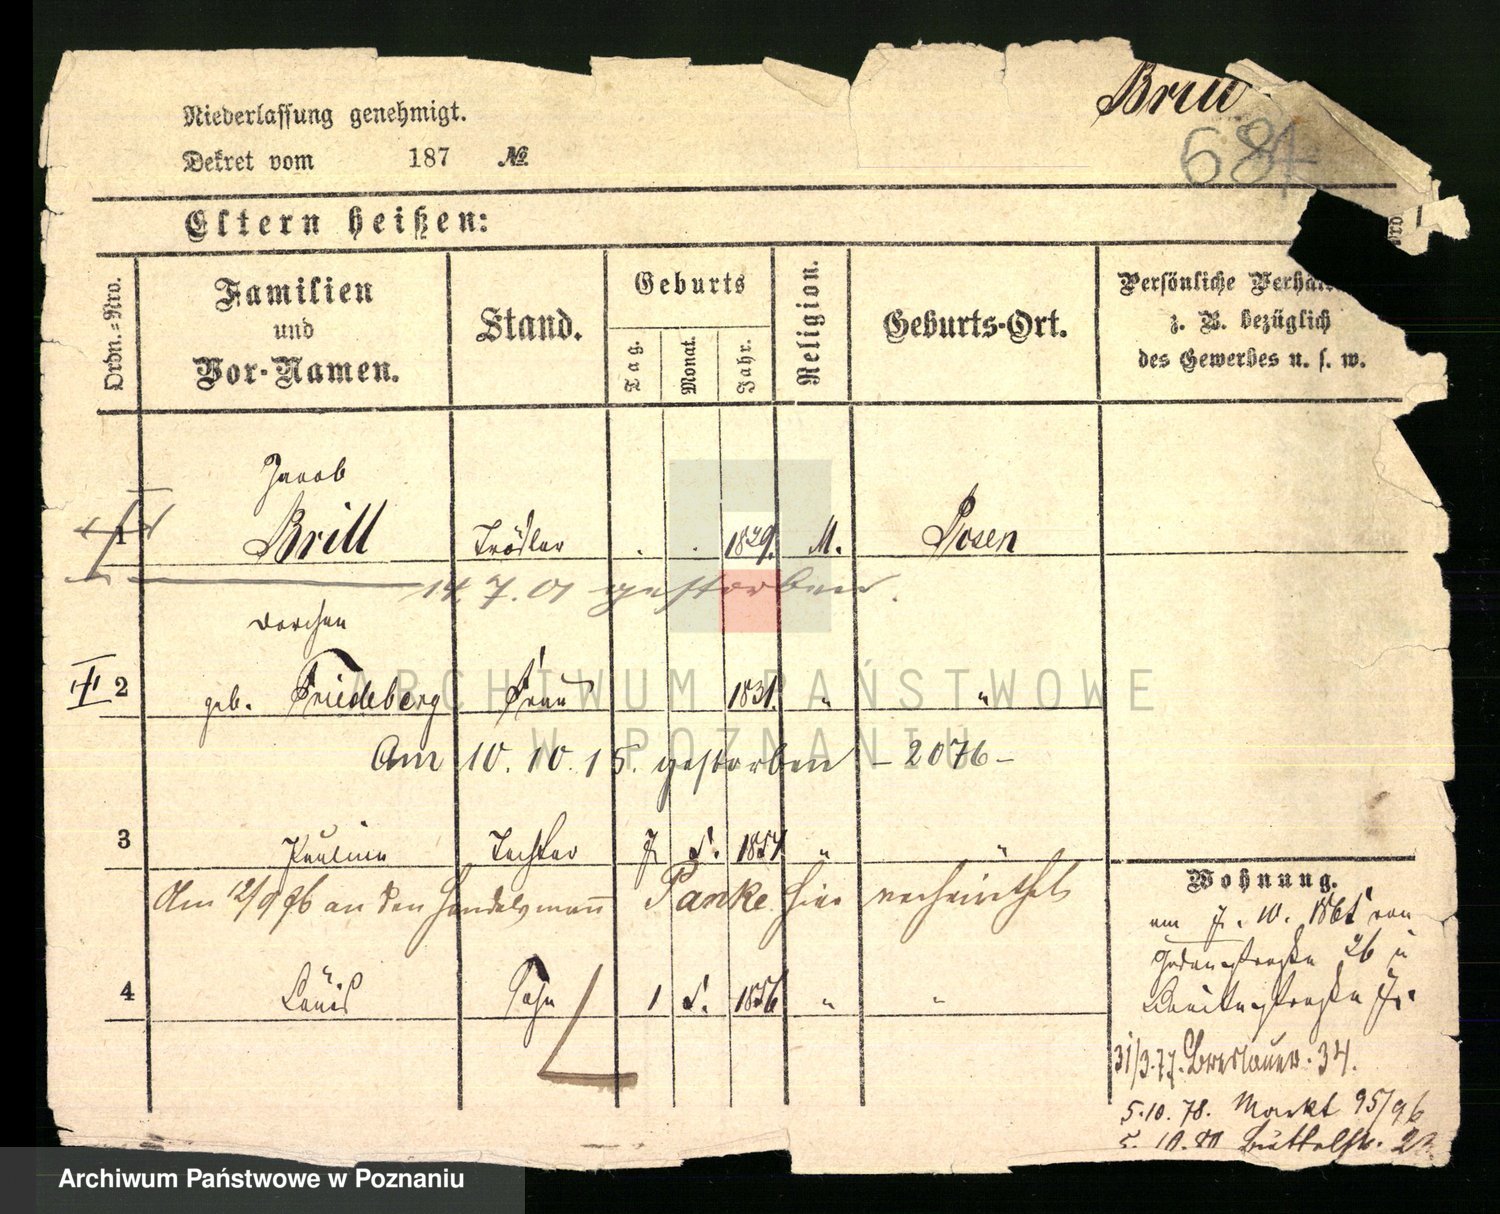 Brill
684
Niederlassung genehmigt.
Dekret vom 187 №
Eltern heißen:
Ordn.=Nro.
Familien
und
Vor-Namen.
Stand.
Geburts
Tag.
Monat.
Jahr.
Religion.
Geburts-Ort.
Persönliche
z. B. bezüglich
des Gewerbes u. s. w.
Jacob
1 Brill Trödler . . 1829. M. Posen
14.7.01 gestorben.
Dorchen
2 geb. Friedeberg Frau 1831. " "
Am 10.10.15. gestorben – 2076 –
3 Pauline Tochter 7 5. 1854 " "
Am 12/9 96 an den Handelsmann Panke hier verheirathet
4 Louis Sohn 1 5. 1856 " "
Wohnung.
am 7. 10. 1865 von
26 u
Breitestraße
31/3.77. Breslauer. 34.
5.10.78. Markt 95/96
5. 10.80 Büttelstr.
ARCHIWUM PAŃSTWOWE
W POZNANIU
Archiwum Państwowe w Poznaniu